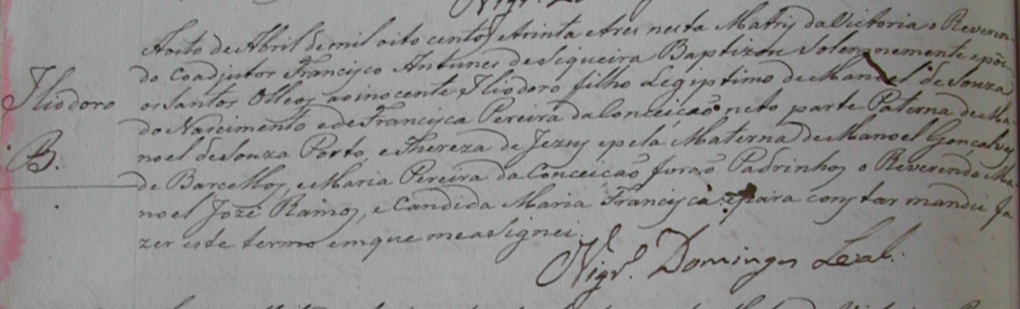 Aoito de Abril de mil oito centos trinta e tres nesta Matriz da Victoria o Reveren-
do Coadjutor Francisco Antunes de Siqueira Baptizou Solemnemente e pôz
os Santos Olleos ao inocente Iliodoro filho Legiptimo de Manoel de Souza
do Nascimento e de Francisca Pereira da Conceicaõ neto parte Paterna de Ma-
noel de Souza Porto, e Thereza de Jezus e pela Materna de Manoel Gonçalves
de Barcellos, e Maria Pereira da Conceicaõ foraõ Padrinhos o Reverendo Ma-
noel Jozé Ramos, e Candida Maria Francisca: e para constar mandei fa
zer este termo em que me asignei.
Iliodoro
B.
Vigr.º Domingos Leal.